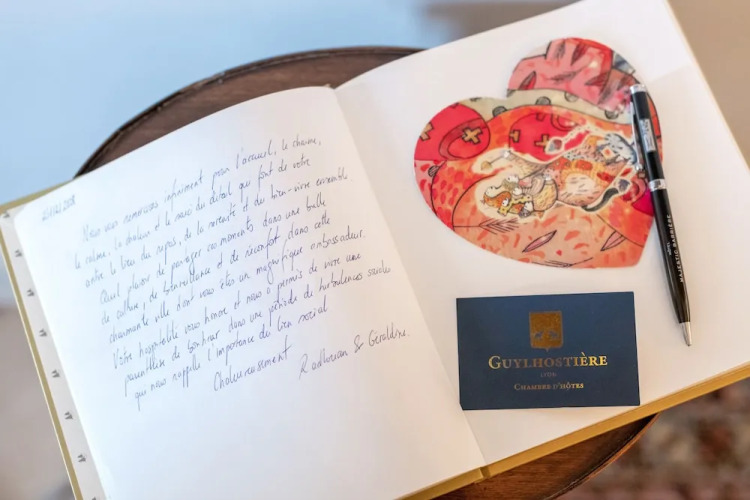 Nous vous remercions infiniment pour l'accueil, le charme,
le calme, la douceur et le souci du détail qui font de votre
antre le lieu du repos, de la sérénité et du bien-vivre ensemble.
Quel plaisir de partager ces moments dans une bulle
de culture, de bienveillance et de réconfort dans cette
charmante ville dont vous êtes un magnifique ambassadeur.
Votre hospitalité vous honore et nous a permis de vivre une
parenthèse de bonheur dans une période de turbulences sociales
qui nous rappelle l'importance du lien social
Chaleureusement
& Géraldine.
GUYLHOSTIÈRE
CHAMBRE D'HÔTES
MAJESTIC BARRIÈRE